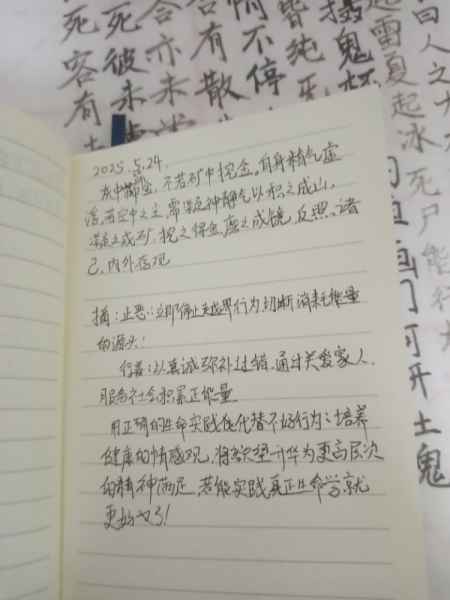 曰人之大
起雷夏起冰死尸能行
摄鬼杯
皆纯
情不停
有散
合亦未
死彼未
死客有
画门可开土鬼
2025.5.24.
灰中筛金,不若矿中挖金。自身精气虚
若空中之尘,需凝神静气以积之成山,
凝之成矿,挖之得金,磨之成镜,反照诸
己,内外俱现
摘:止恶:立即停止越界行为,切断消耗能量
的源头!
行善:以真诚弥补过错,通过关爱家人、
服务社会积累正能量
用正确的生命实践优化替不好行为:培养
健康的情感观,将欲望升华为更高层次
的精神满足,若能实践真正生命学,就
更好了!